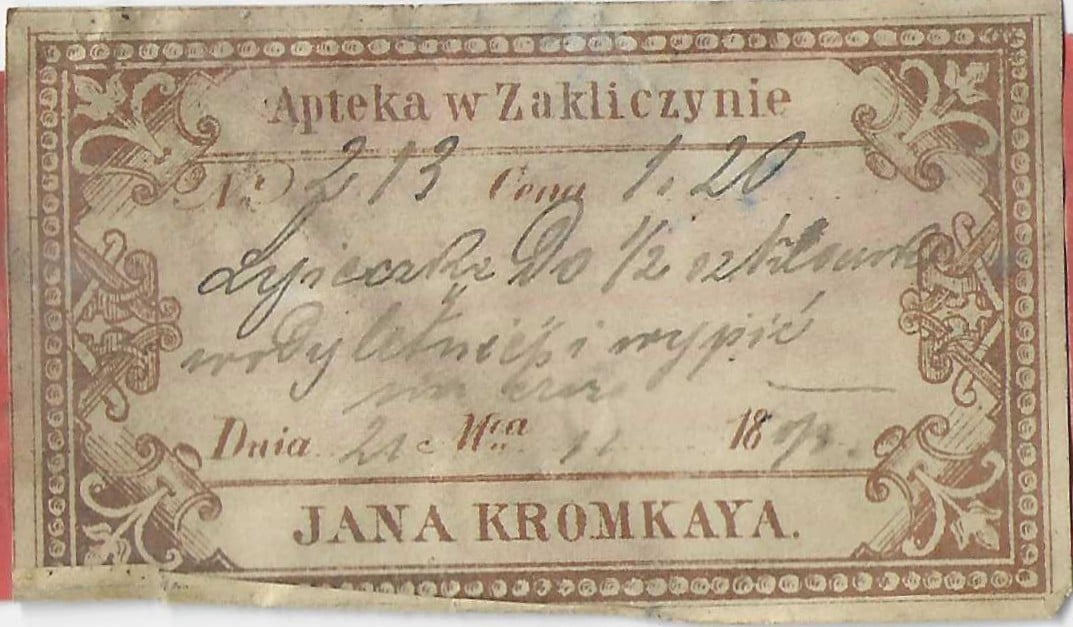 Apteka w Zakliczynie
Nr. 213 Cena 1.20
Łyżeczkę Do 1/2 szklanki
wody letniéj i wypić
na raz
Dnia 21 Mca 11 18
JANA KROMKAYA.